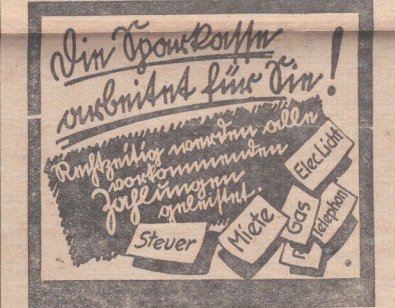 Die Sparkasse
arbeitet für Sie!
Rechtzeitig werden alle
vorkommenden
Zahlungen
geleistet.
Steuer
Miete
Gas
Telephon
Elec.Licht